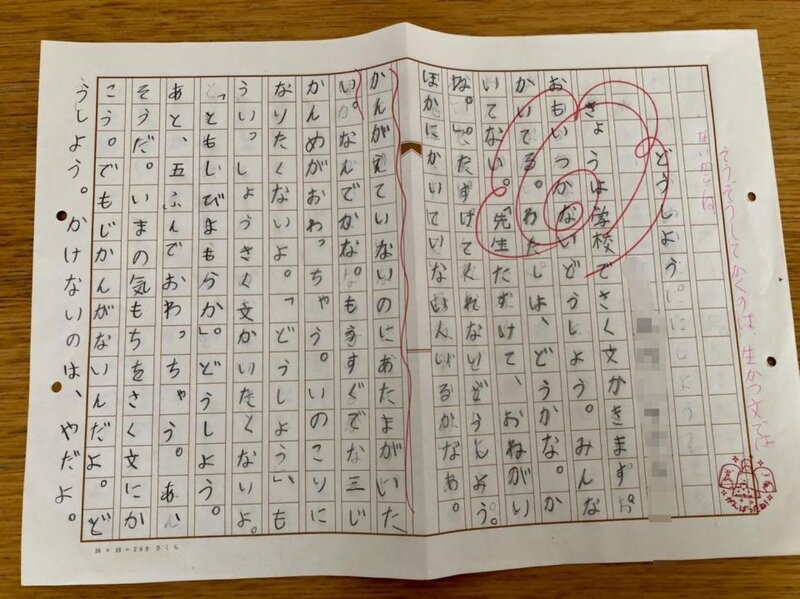 そうぞうしてかくのは、生かつ文では
どうしよう。
きょうは学校でさく文がきます。
おもいつかないどうしよう。みんな
かいてる。わたしは、どうかな。か
いてない。「先生たすけて、おねがい
な。」たすけてくれないどうしよう。
ほかにかいていない いるかなぁ。
かんがえていないのにあたまがいた
い。なんでかな。もうすぐでな三じ
かんめがおわっちゃう。いのこりに
なりたくないよ。「どうしよう」も
うい。っしょうさく文かいたくないよ。
「ともしびまも分か」。どうしよう。
あと、五ふんでおわっちゃう。あ、
そうだ。いまの気もちをさく文にか
こう。でもじかんがないんだよ。ど
うしよう。かけないのは、やだよ。
16 × 18 = 288 さくら